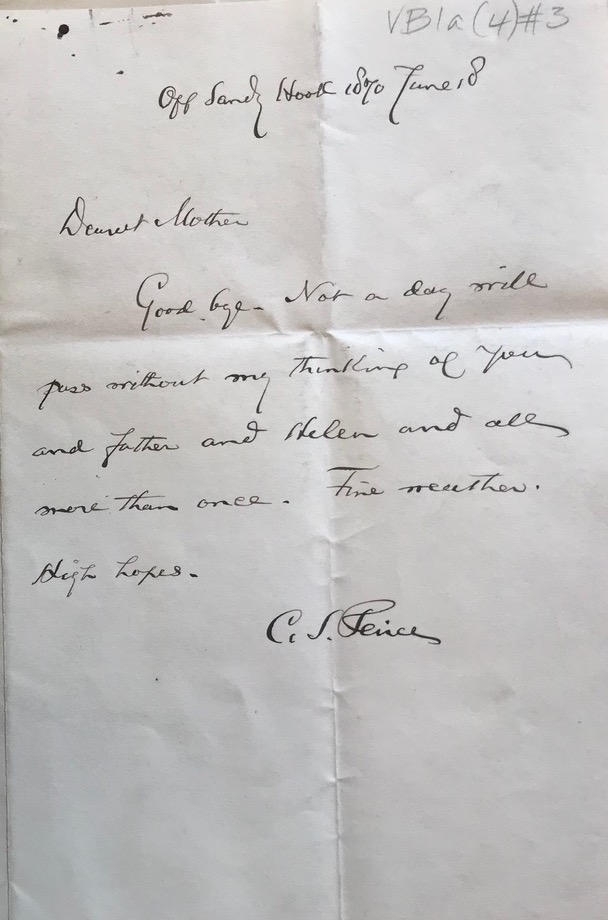 VB1a(4)#3
Off Sandy Hook 1870 June 18
Dearest Mother
Good bye- Not a day will
pass without my thinking of you
and father and Helen and all
more than once. Fine weather.
High hopes.
C. S. Peirce